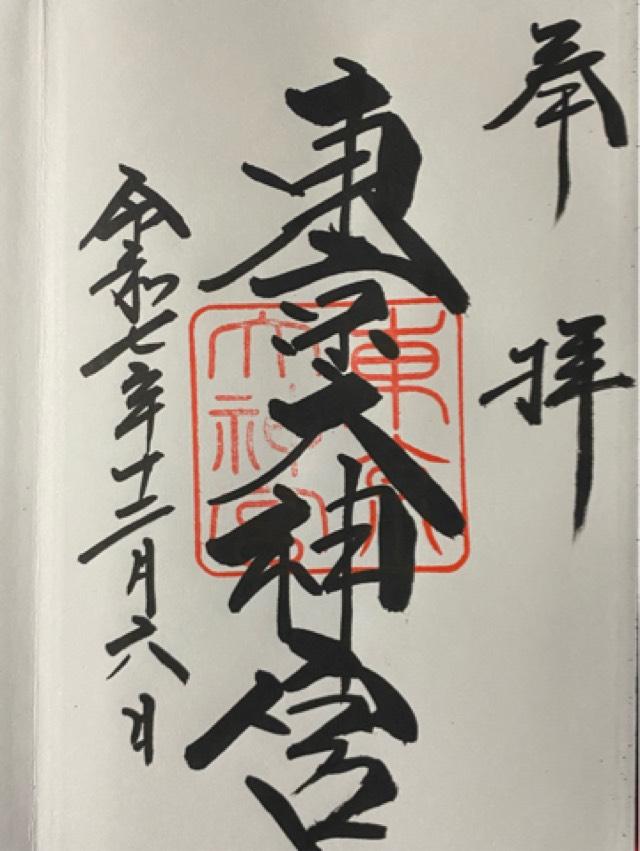 奉拝
東京大神宮
東京
大神宮
令和七年十二月六日